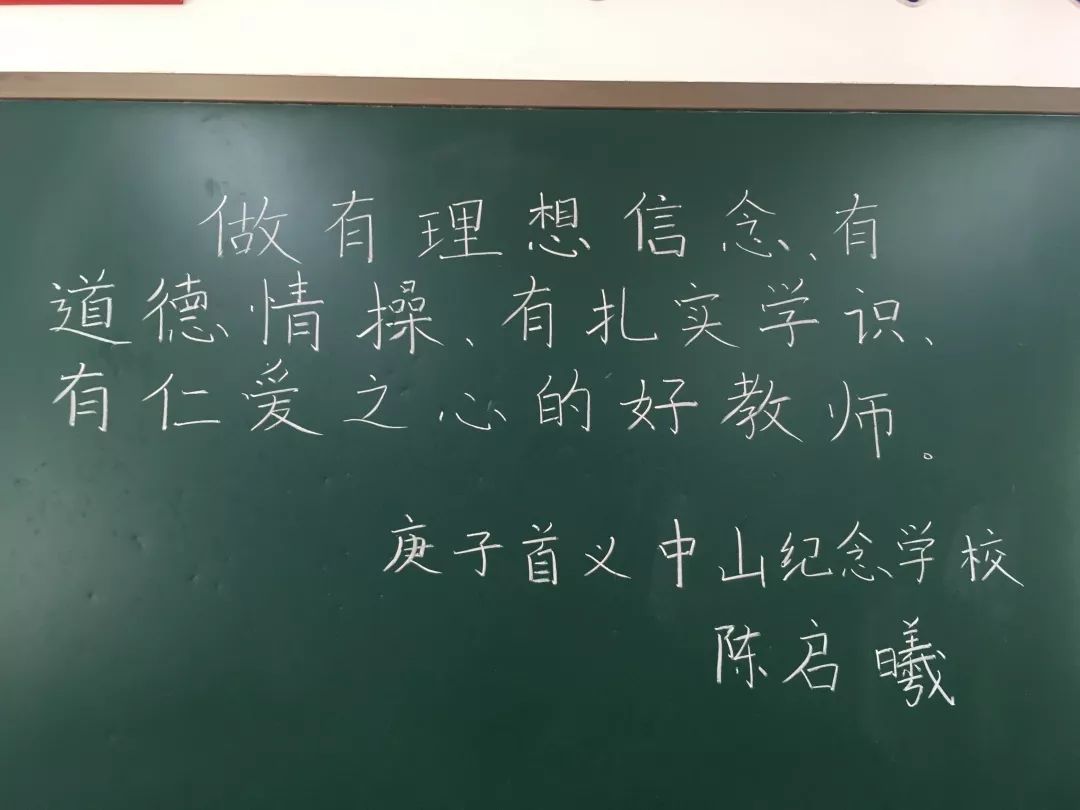 做有理想信念、有
道德情操、有扎实学识、
有仁爱之心的好教师。
庚子首义中山纪念学校
陈启曦